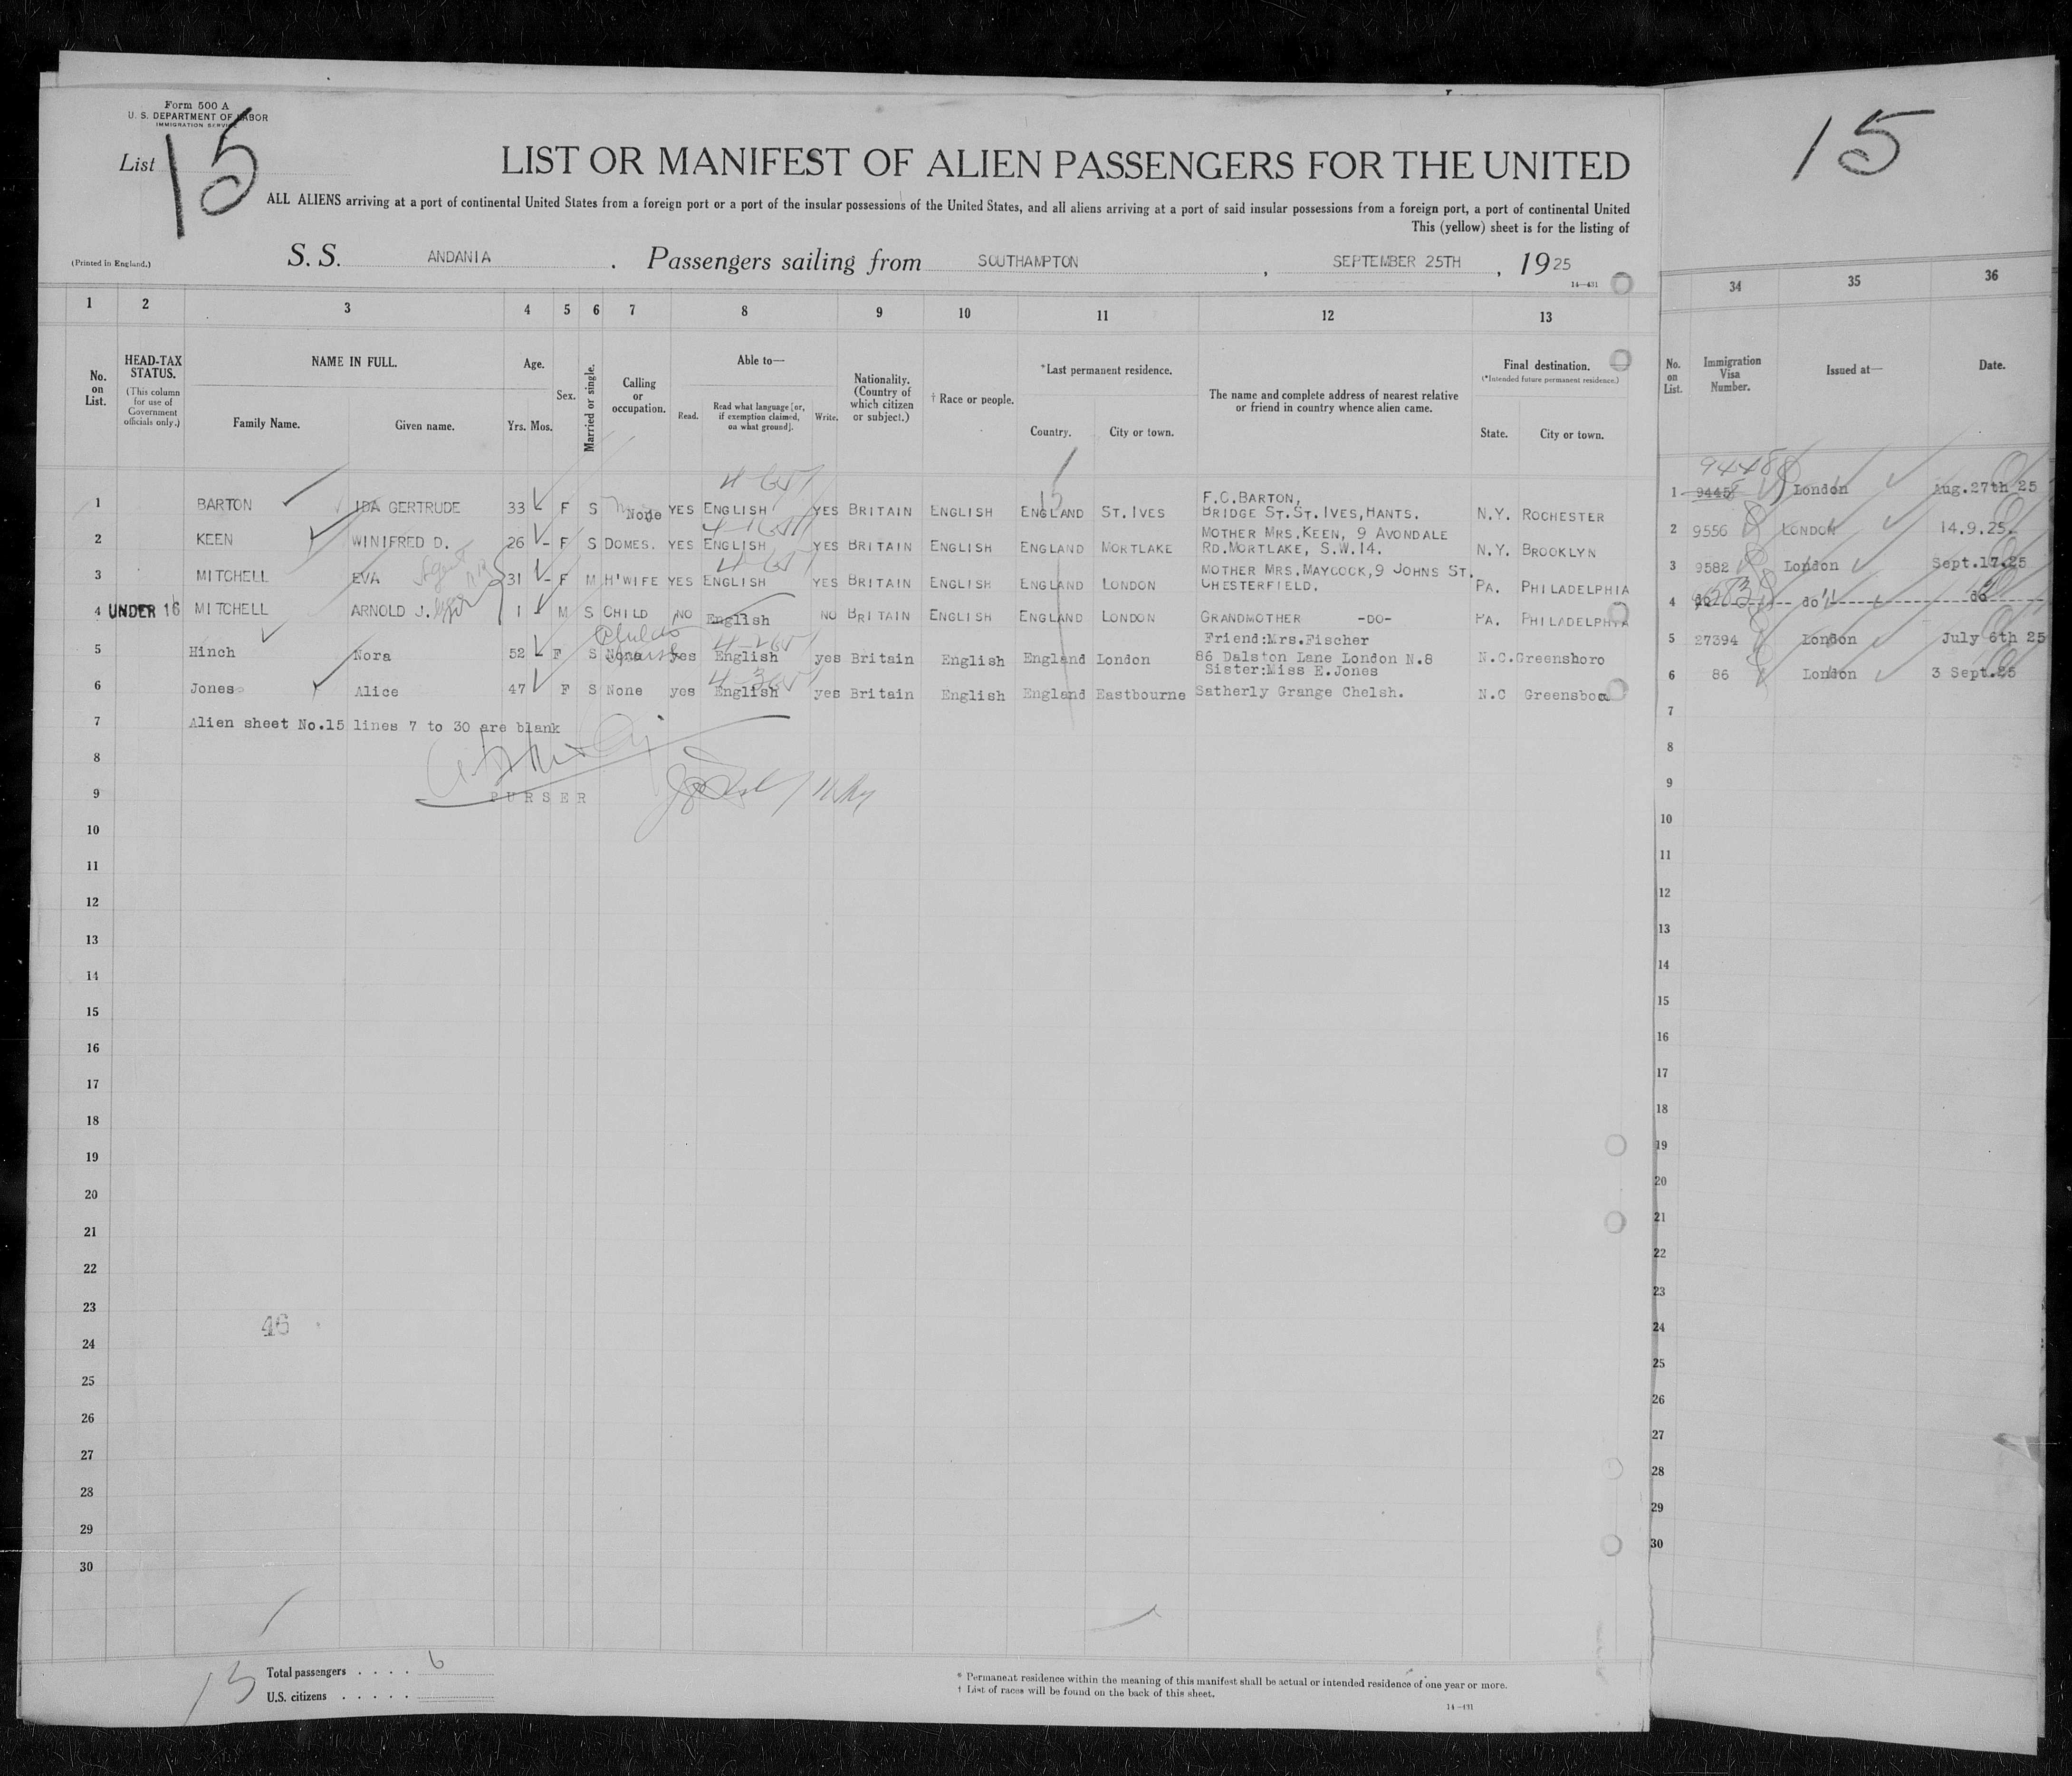 Form 500 A
U. S. DEPARTMENT OF LABOR
IMMIGRATION SERVICE
List 15
15
LIST OR MANIFEST OF ALIEN PASSENGERS FOR THE UNITED
ALL ALIENS arriving at a port of continental United States from a foreign port or a port of the insular possessions of the United States, and all aliens arriving at a port of said insular possessions from a foreign port, a port of continental United
This (yellow) sheet is for the listing of
(Printed in England.)
S. S. ANDANIA . Passengers sailing from SOUTHAMPTON , SEPTEMBER 25TH , 1925
14—431
1 2 3 4 5 6 7 8 9 10 11 12 13 34 35 36
No. on List.
HEAD-TAX STATUS.
(This column for use of Government officials only.)
NAME IN FULL.
Family Name. Given name.
Age.
Yrs. Mos.
Sex.
Married or single.
Calling or occupation.
Able to—
Read. Read what language [or, if exemption claimed, on what ground]. Write.
Nationality. (Country of which citizen or subject.)
† Race or people.
*Last permanent residence.
Country. City or town.
The name and complete address of nearest relative or friend in country whence alien came.
Final destination.
(*Intended future permanent residence.)
State. City or town.
No. on List.
Immigration Visa Number.
Issued at—
Date.
9448
1 BARTON IDA GERTRUDE 33 F S None YES ENGLISH YES BRITAIN ENGLISH ENGLAND ST. IVES F.C.BARTON, BRIDGE ST.ST. IVES,HANTS. N.Y. ROCHESTER 1 9445 London Aug.27th 25
2 KEEN WINIFRED D. 26 - F S DOMES. YES ENGLISH YES BRITAIN ENGLISH ENGLAND MORTLAKE MOTHER MRS.KEEN, 9 AVONDALE RD.MORTLAKE, S.W.14. N.Y. BROOKLYN 2 9556 LONDON 14.9.25.
3 MITCHELL EVA 31 - F M H'WIFE YES ENGLISH YES BRITAIN ENGLISH ENGLAND LONDON MOTHER MRS.MAYCOCK,9 JOHNS ST. CHESTERFIELD. PA. PHILADELPHIA 3 9582 London Sept.17.25
4 UNDER 16 MITCHELL ARNOLD J. 1 - M S CHILD NO English NO BRITAIN ENGLISH ENGLAND LONDON GRANDMOTHER -DO- PA. PHILADELPHIA 4 do 9583 do do
5 Hinch Nora 52 - F S None yes English yes Britain English England London Friend:Mrs.Fischer 86 Dalston Lane London N.8 N.C.Greensboro 5 27394 London July 6th 25
6 Jones Alice 47 F S None yes English yes Britain English England Eastbourne Sister:Miss E.Jones Satherly Grange Chelsh. N.C Greensboo 6 86 London 3 Sept.25
7 Alien sheet No.15 lines 7 to 30 are blank 7
8 8
PURSER
9 9
10 10
11 11
12 12
13 13
14 14
15 15
16 16
17 17
18 18
19 19
20 20
21 21
22 22
23 23
46
24 24
25 25
26 26
27 27
28 28
29 29
30 30
15
Total passengers . . . . 6
U.S. citizens . . . . .
* Permanent residence within the meaning of this manifest shall be actual or intended residence of one year or more.
† List of races will be found on the back of this sheet.
14—431